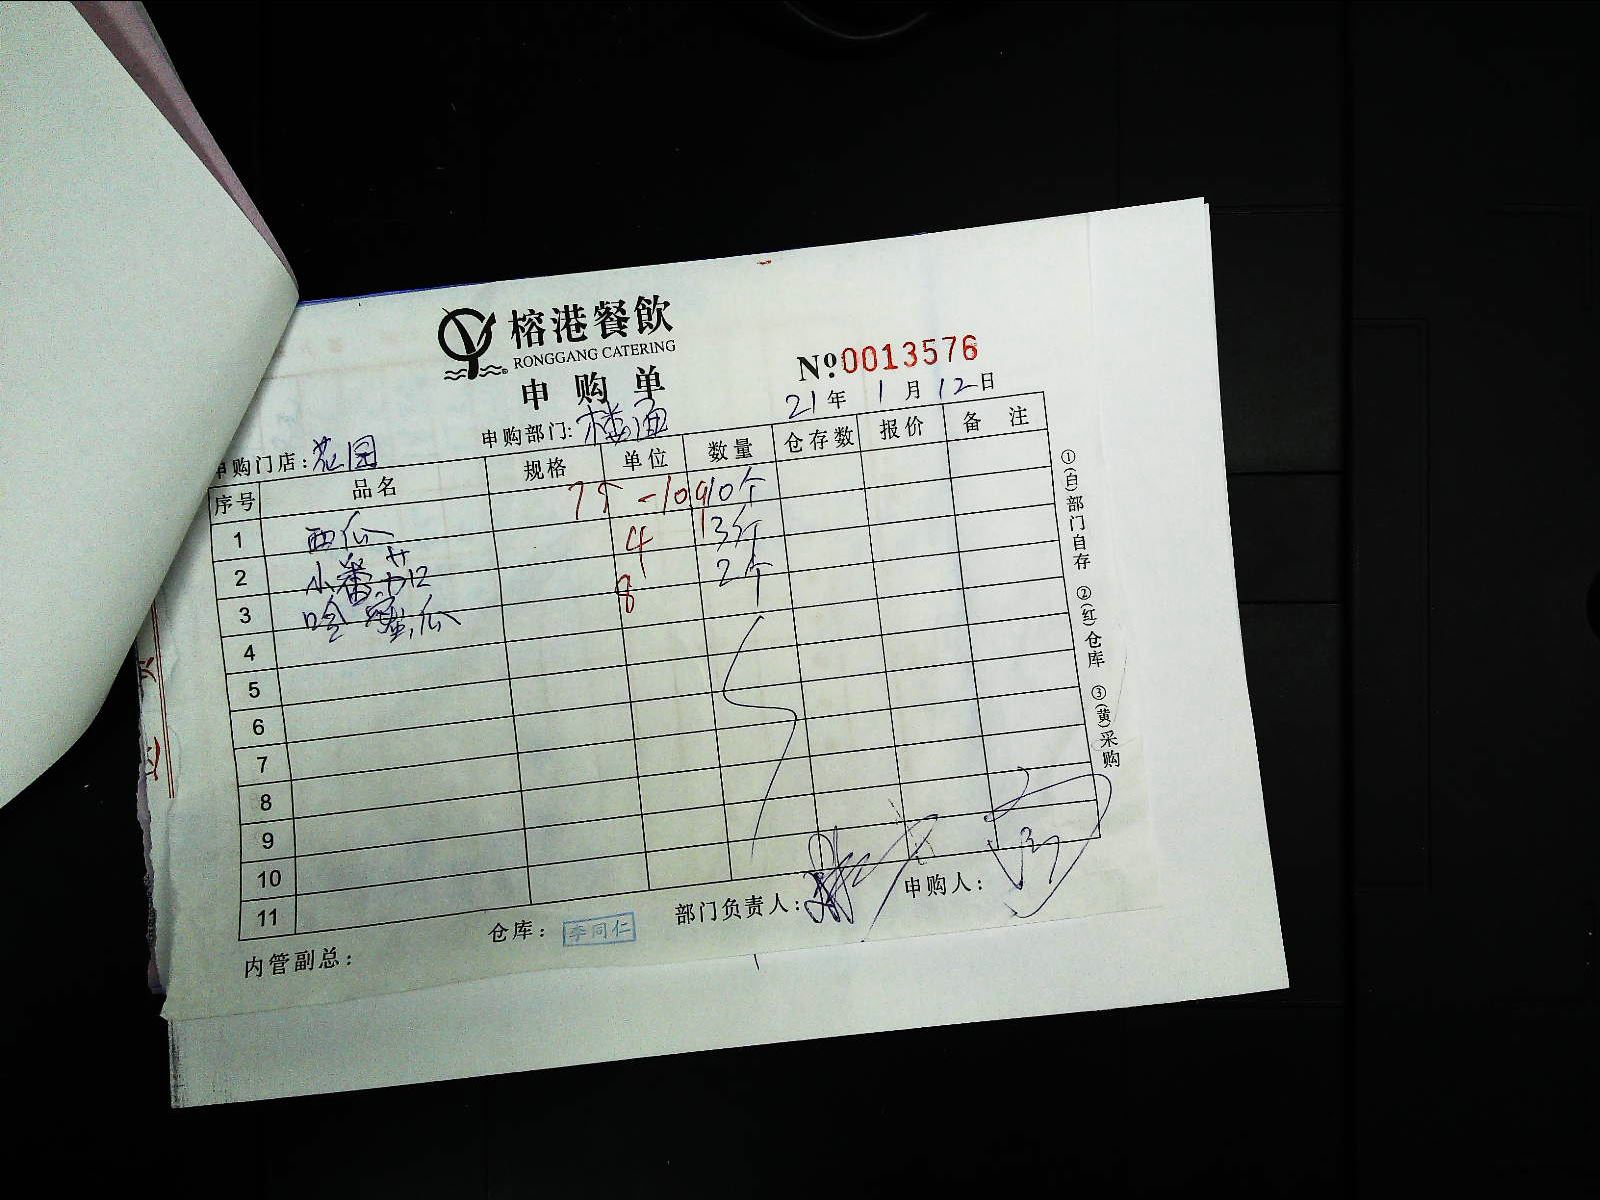 榕港餐飲
RONGGANG CATERING
申购单
№0013576
21年1月12日
申购门店:花园 申购部门:楼面
序号 品名 规格 单位 数量 仓存数 报价 备注
1 西瓜 7个 -109 10个
2 小番茄 4 13斤
3 哈蜜瓜 8 2个
4
5
6
7
8
9
10
11
内管副总: 仓库: 李同仁 部门负责人: 申购人:
①(白)部门自存 ②(红)仓库 ③(黄)采购